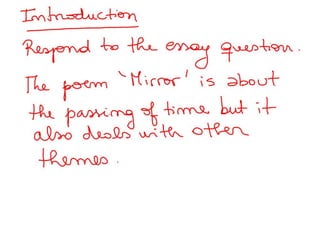 Introduction
Respond to the essay question.
The poem 'Mirror' is about
the passing of time but it
also deals with other
themes.